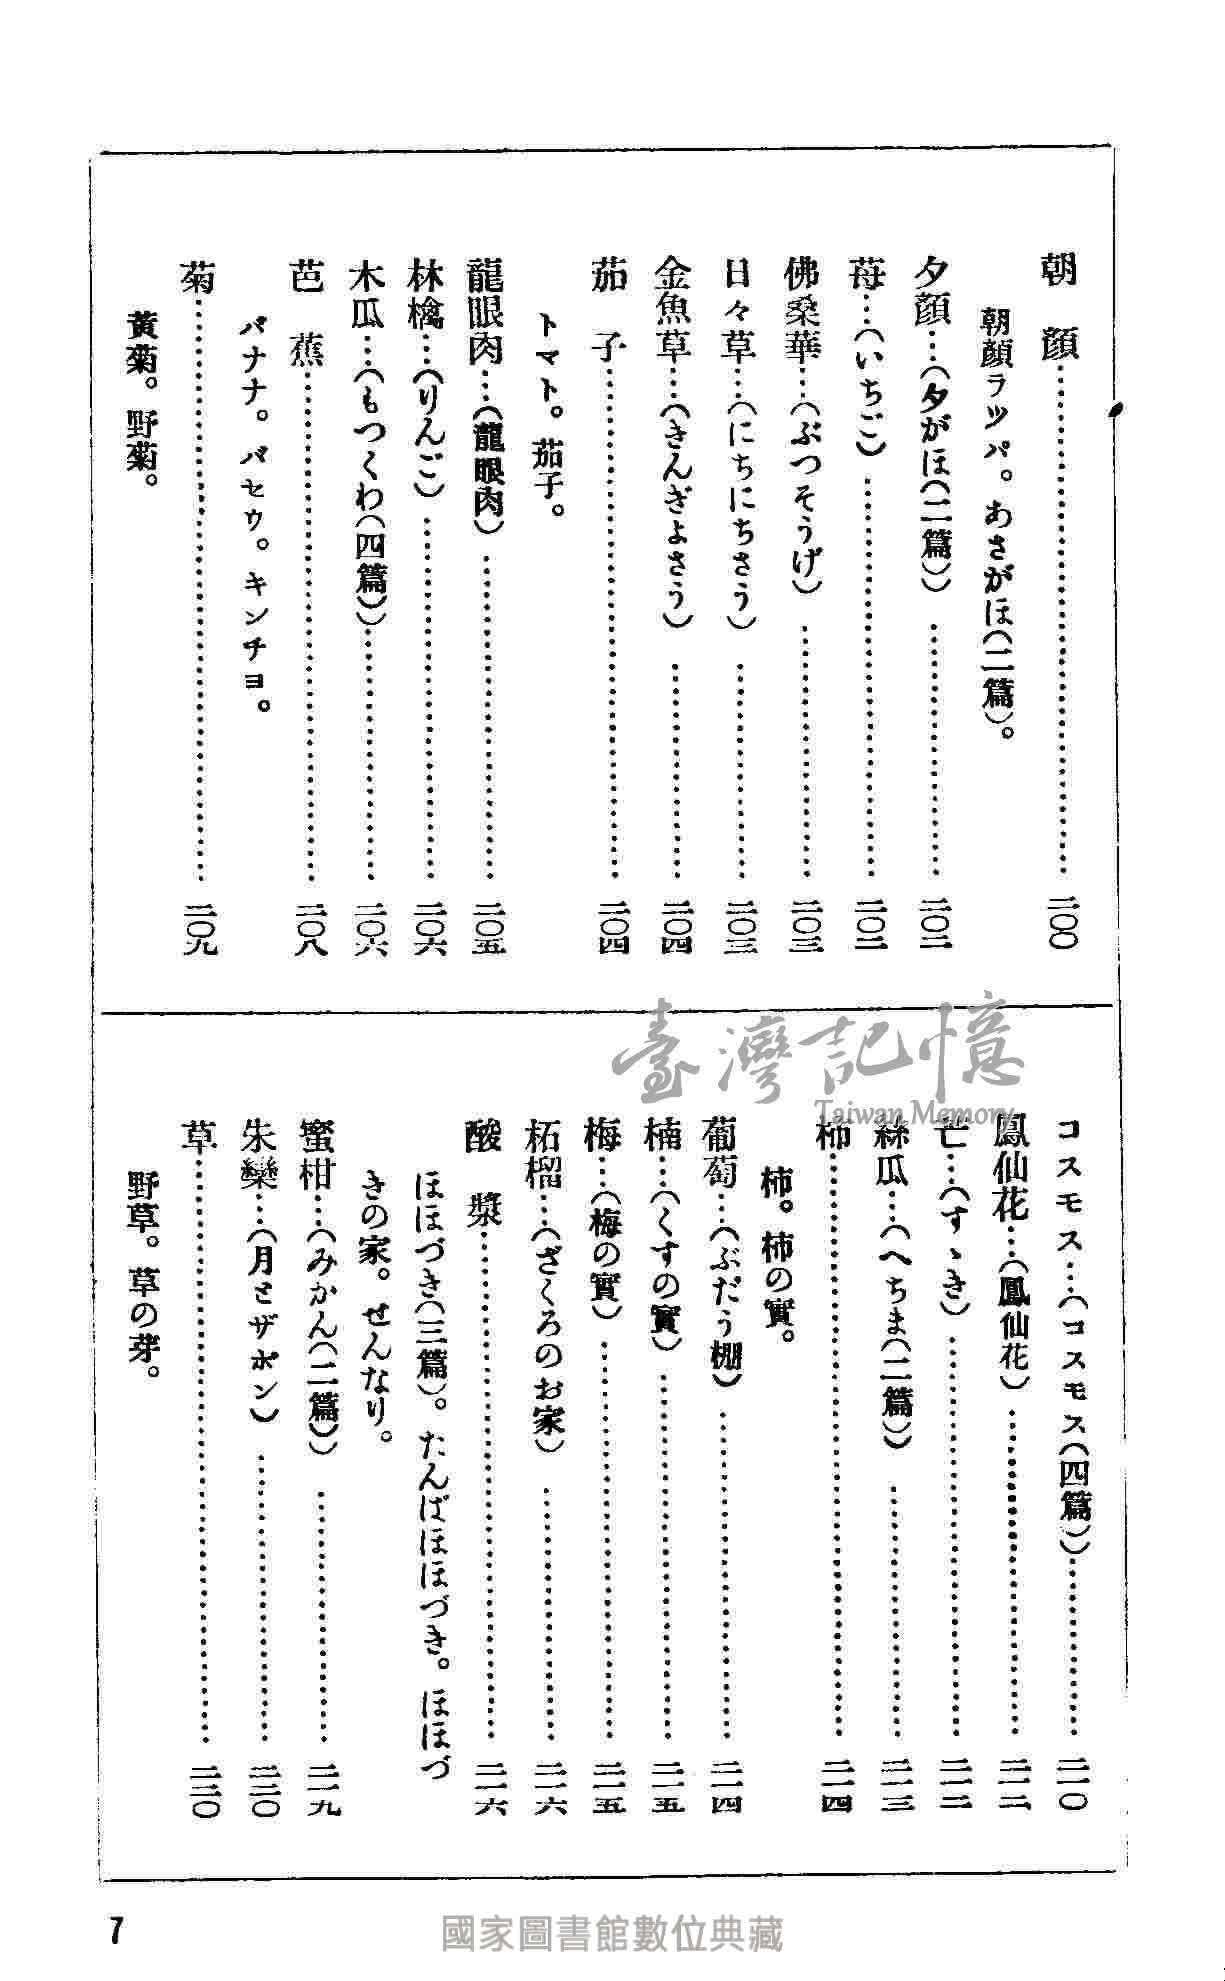 朝顏……………………二〇〇
朝顏ラツパ。あさがほ(二篇)。
夕顏…(夕がほ(二篇))……………………二〇二
苺…(いちご)……………………二〇二
佛桑華…(ぶつそうげ)……………………二〇三
日々草…(にちにちさう)……………………二〇三
金魚草…(きんぎよさう)……………………二〇四
茄子……………………二〇四
トマト。茄子。
龍眼肉…(龍眼肉)……………………二〇五
林檎…(りんご)……………………二〇六
木瓜…(もつくわ(四篇))……………………二〇六
芭蕉……………………二〇八
バナナ。バセウ。キンチヨ。
菊……………………二〇九
黃菊。野菊。
コスモス…(コスモス(四篇))……………………二一〇
鳳仙花…(鳳仙花)……………………二一二
芒…(すゝき)……………………二一二
絲瓜…(へちま(二篇))……………………二一三
柿……………………二一四
柿。柿の實。
葡萄…(ぶだう棚)……………………二一四
楠…(くすの實)……………………二一五
梅…(梅の實)……………………二一五
柘榴…(ざくろのお家)……………………二一六
酸漿……………………二一六
ほほづき(三篇)。たんばほほづき。ほほづ
きの家。せんなり。
蜜柑…(みかん(二篇))……………………二一九
朱欒…(月とザボン)……………………二二〇
草……………………二二〇
野草。草の芽。
臺灣記憶
Taiwan Memory
7
國家圖書館數位典藏